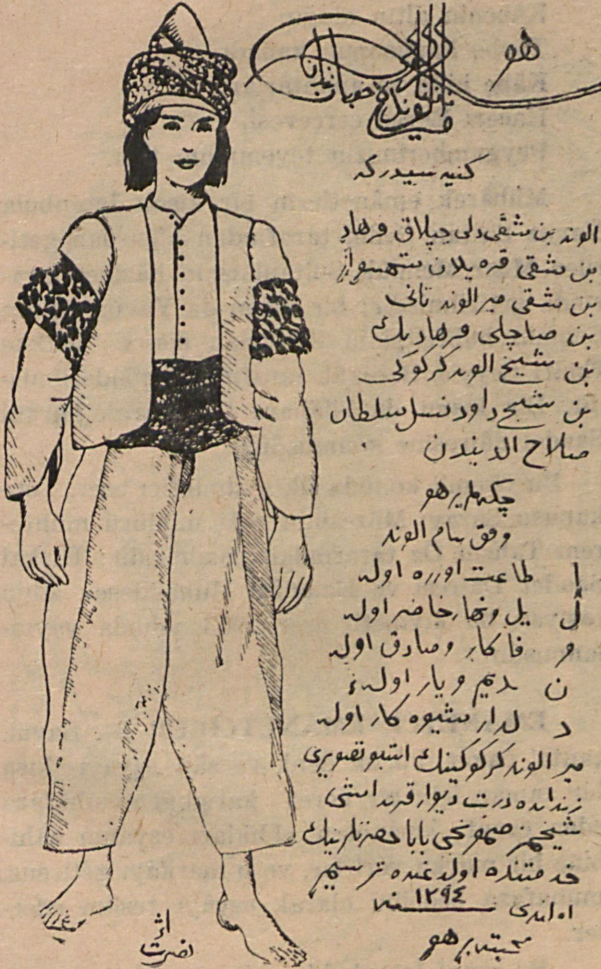 هو
كنيه سيدركه
الوند بن مشقى دلى چپلاق فرهاد
بن مشقى قره يلان شهسوار
بن مشقى مير الوند ثانى
بن صاچلى فرهاد بك
بن شيخ الوند كركوكى
بن شيخ داود نسل سلطان
صلاح الديندن
چكه لم بر هو
وفق بنام الوند
ا طاعت اوزره اوله
ل يل و نهار حاضر اوله
و فا كار و صادق اوله
ن ديم و يار اوله
د لدار شيوه كار اوله
مير الوند كركوكينك اشبو تصويرى
زنداندە درت ديوار قرنداشى
شيخمز صمونجى بابا حضرتلرينك
خدمتنده اولديغنده ترسيم
اولندى ١٢٩٤ سنه
محبتله بر هو
اثر
نصرت